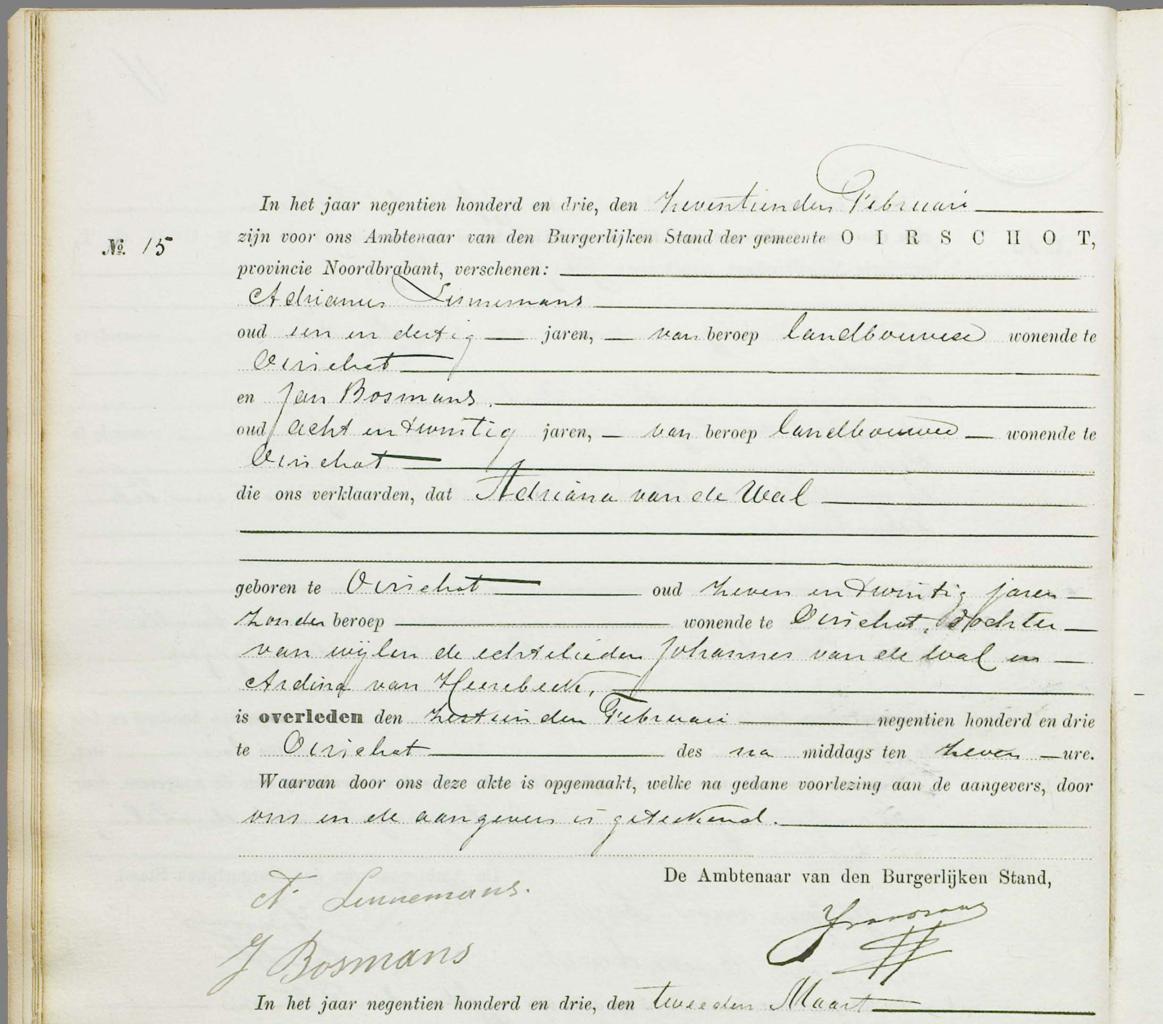 In het jaar negentien honderd en drie, den zeventienden Februari
zijn voor ons Ambtenaar van den Burgerlijken Stand der gemeente OIRSCHOT,
№. 15
provincie Noordbrabant, verschenen:
Adrianus Linnemans
oud een en dertig jaren, van beroep landbouwer wonende te
Oirschot
en Jan Bosmans.
oud acht en twintig jaren, van beroep landbouwer wonende te
Oirschot
die ons verklaarden, dat Adriana van de Wal
geboren te Oirschot oud zeven en twintig jaren
zonder beroep wonende te Oirschot, dochter
van wijlen de echtelieden Johannes van de Wal en
Ardina van Heerebeek,
is overleden den zestienden Februari negentien honderd en drie
te Oirschot des na middags ten zeven ure.
Waarvan door ons deze akte is opgemaakt, welke na gedane voorlezing aan de aangevers, door
ons en de aangevers is geteekend.
De Ambtenaar van den Burgerlijken Stand,
A. Linnemans.
J Bosmans
In het jaar negentien honderd en drie, den tweeden Maart